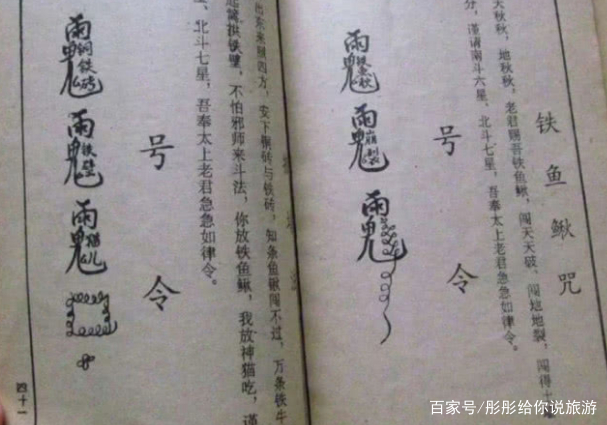 铁鱼鳅咒
天秋秋，地秋秋，老君赐吾铁鱼鳅，闯天天破，闯地地裂，闯得
分，谨请南斗六星，北斗七星，吾奉太上老君急急如律令。
号令
雨鬼
雨鬼
雨鬼
出东来照四方，安下铜砖与铁砖，知条鱼鳅闯不过，万条铁牛
拱铁壁，不怕邪师来斗法，你放铁鱼鳅，我放神猫吃，谨
星，北斗七星，吾奉太上老君急急如律令。
号令
雨鬼铜铁砖
雨鬼铁壁
雨鬼猫儿
四十一
百家号/彤彤给你说旅游